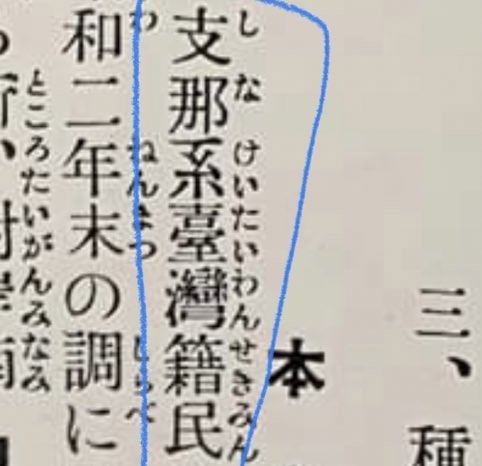 三、種
本
支那系臺灣籍民
しなけいたいわんせきみん
和二年末の調に
わねんまつしらべ
ところたいがんみなみ